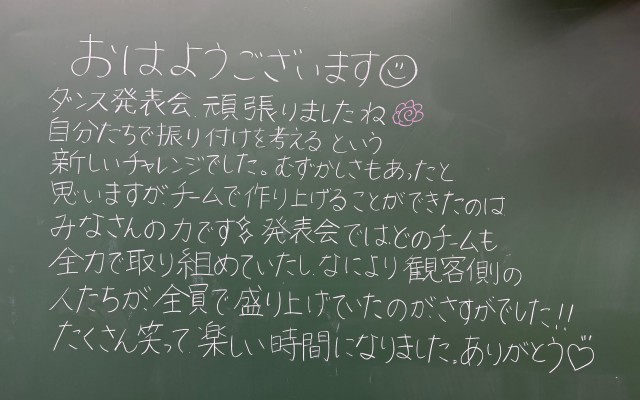 おはようございます
ダンス発表会 頑張りましたね
自分たちで振り付けを考える という
新しいチャレンジでした。むずかしさもあったと
思いますが、チームで作り上げることができたのは
みなさんの力です 発表会ではどのチームも
全力で取り組めていたし、なにより観客側の
人たちが、全員で盛り上げていたのが、さすがでした!!
たくさん笑って 楽しい時間になりました。ありがとう♡